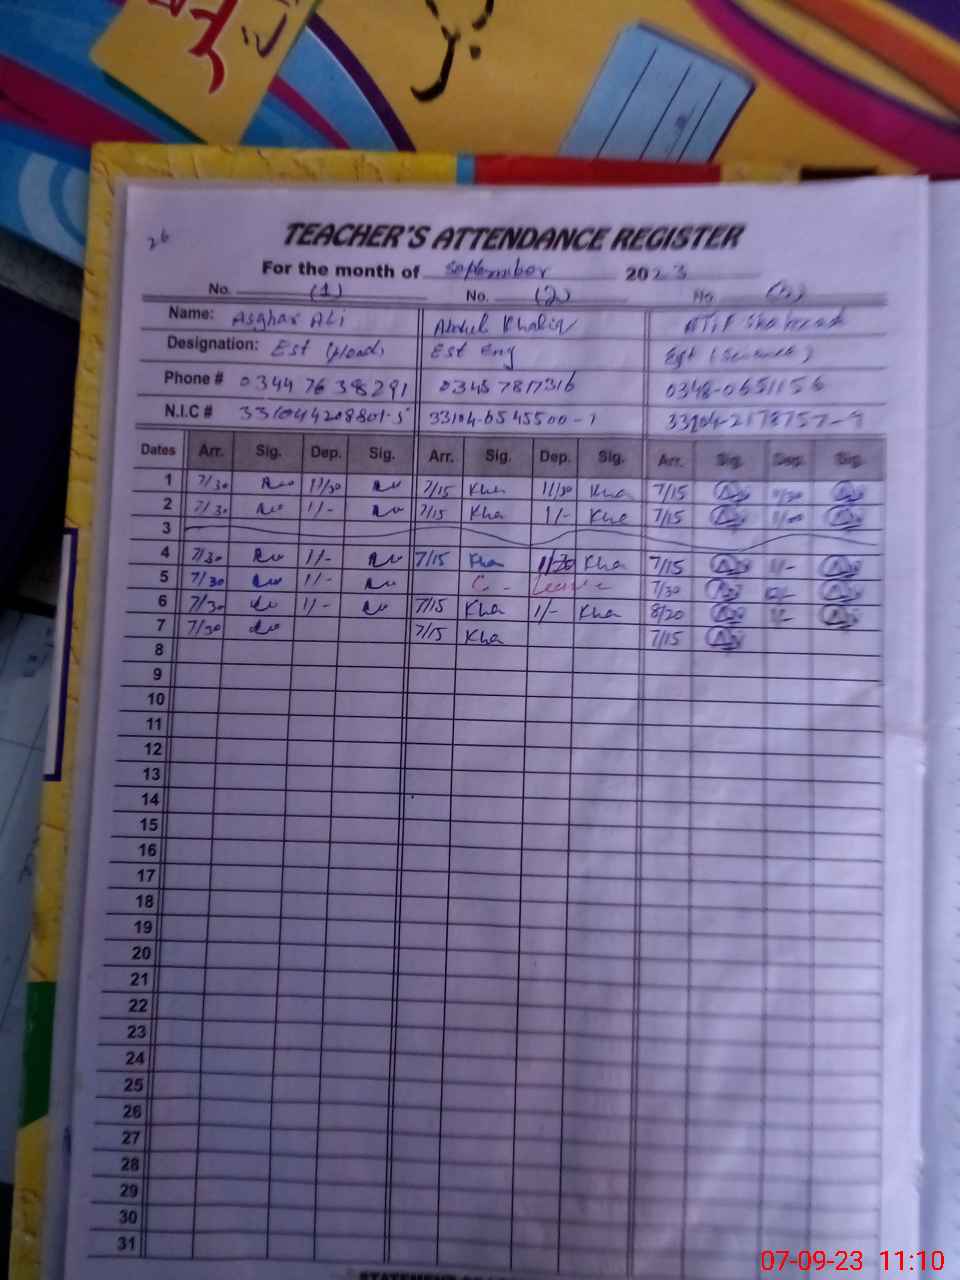 26
TEACHER'S ATTENDANCE REGISTER
For the month of September 2023
No. (1) No. (2) No.
Name: Asghar Ali Abdul Khaliq Atif Shahzad
Designation: Est (Head) Est Eng Est (Science)
Phone # 0344 7638291 0345 7817316 0348-0651156
N.I.C # 33104-6545500-7
Dates Arr. Sig. Dep. Sig. Arr. Sig. Dep. Sig. Arr. Sig. Dep. Sig.
1 7/30 11/30 7/15 Kha 11/30 Kha 7/15
2 7/30 1/- 7/15 Kha 1/- Kha 7/15
3
4 7/30 1/- 7/15 Kha 11/30 Kha 7/15 1/-
5 7/30 1/- C - Leave 7/30
6 7/30 1/- 7/15 Kha 1/- Kha 8/20
7 7/30 7/15 Kha 7/15
8
9
10
11
12
13
14
15
16
17
18
19
20
21
22
23
24
25
26
27
28
29
30
31
07-09-23 11:10